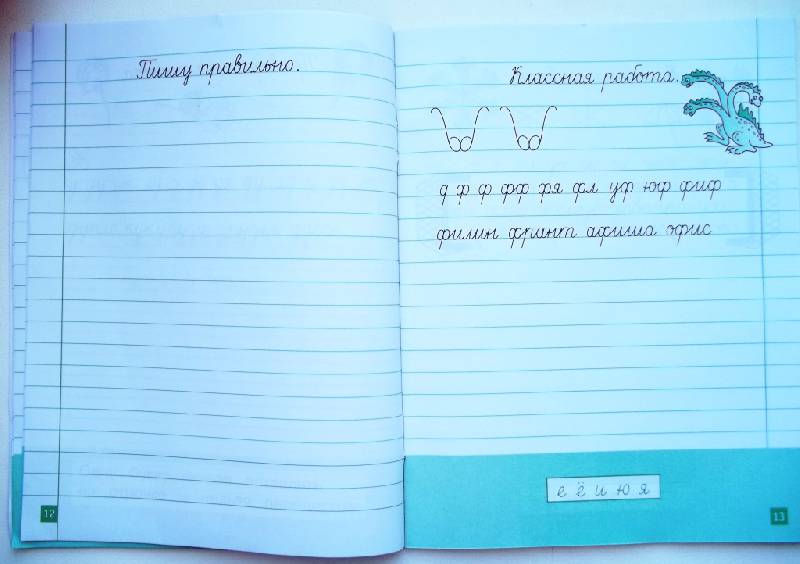 Пишу правильно.
12
Классная работа.
ф ф фф фя фл уф юф фиф
филин франт афиша офис
е ё и ю я
13